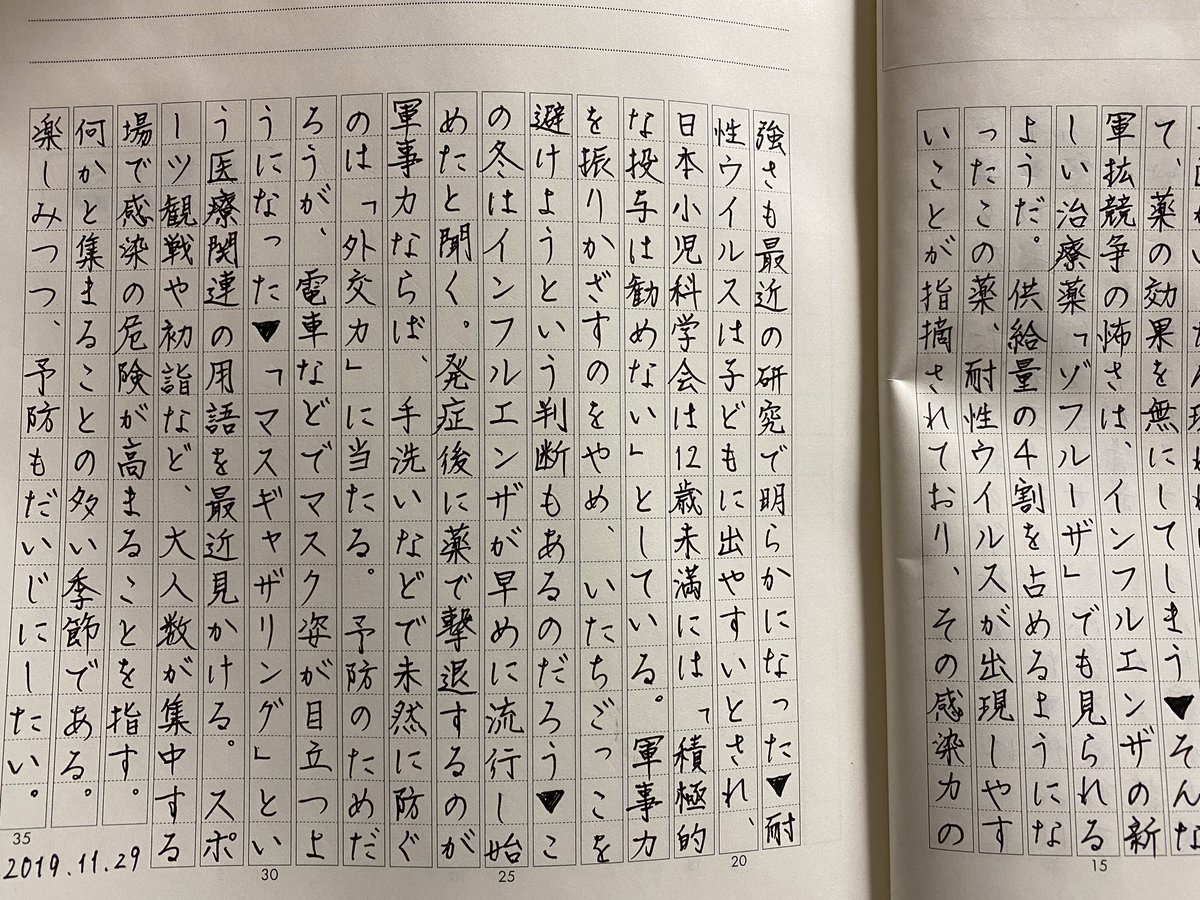 て、薬の効果を無にしてしまう▼そんな
軍拡競争の怖さは、インフルエンザの新
しい治療薬「ゾフルーザ」でも見られる
ようだ。供給量の4割を占めるようにな
ったこの薬、耐性ウイルスが出現しやす
いことが指摘されており、その感染力の
15
強さも最近の研究で明らかになった▼耐
性ウイルスは子どもに出やすいとされ、
日本小児科学会は12歳未満には「積極的
な投与は勧めない」としている。軍事力
を振りかざすのをやめ、いたちごっこを
避けようという判断もあるのだろう▼こ
の冬はインフルエンザが早めに流行し始
めたと聞く。発症後に薬で撃退するのが
軍事力ならば、手洗いなどで未然に防ぐ
のは「外交力」に当たる。予防のためだ
ろうが、電車などでマスク姿が目立つよ
うになった▼「マスギャザリング」とい
う医療関連の用語を最近見かける。スポ
ーツ観戦や初詣など、大人数が集中する
場で感染の危険が高まることを指す。
何かと集まることの多い季節である。
楽しみつつ、予防もだいじにしたい。
20
25
30
35
2019.11.29